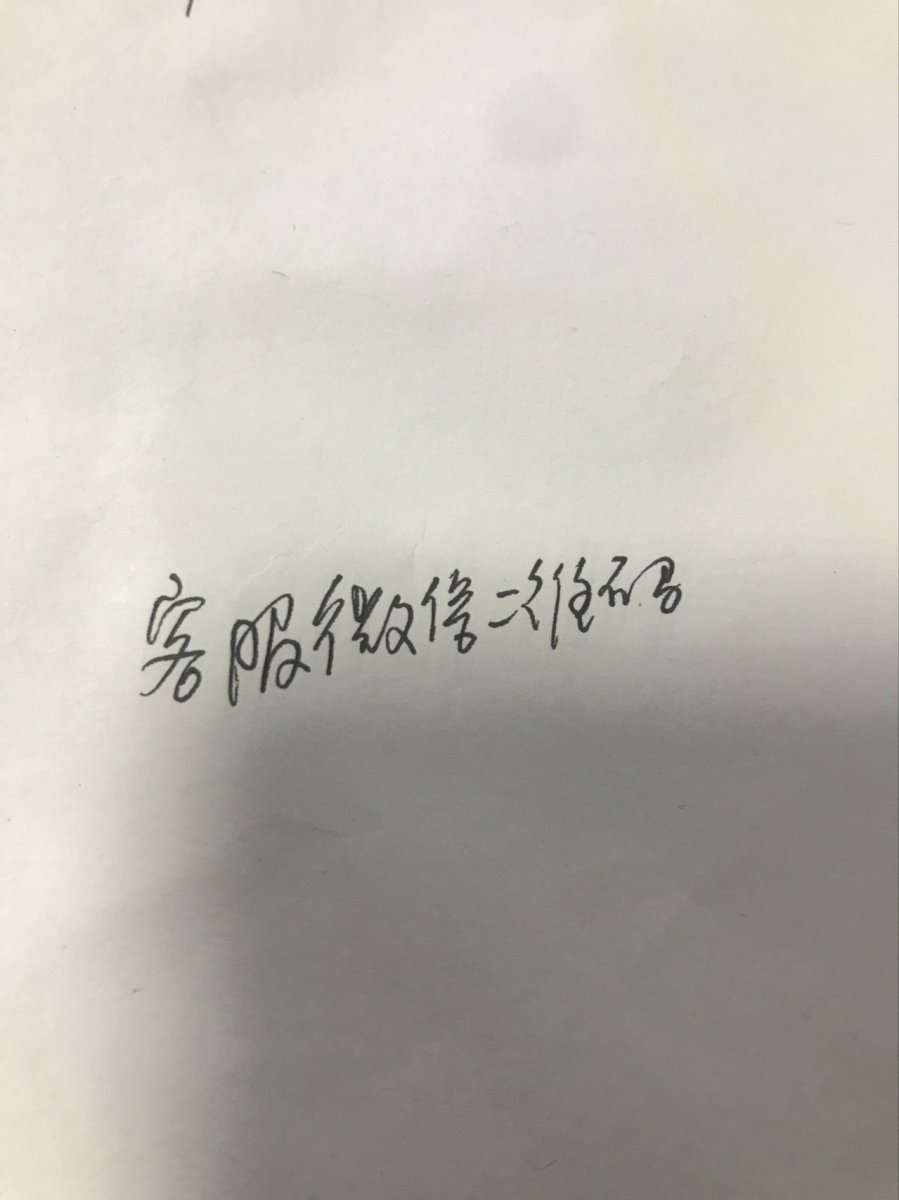 客服微信二维码